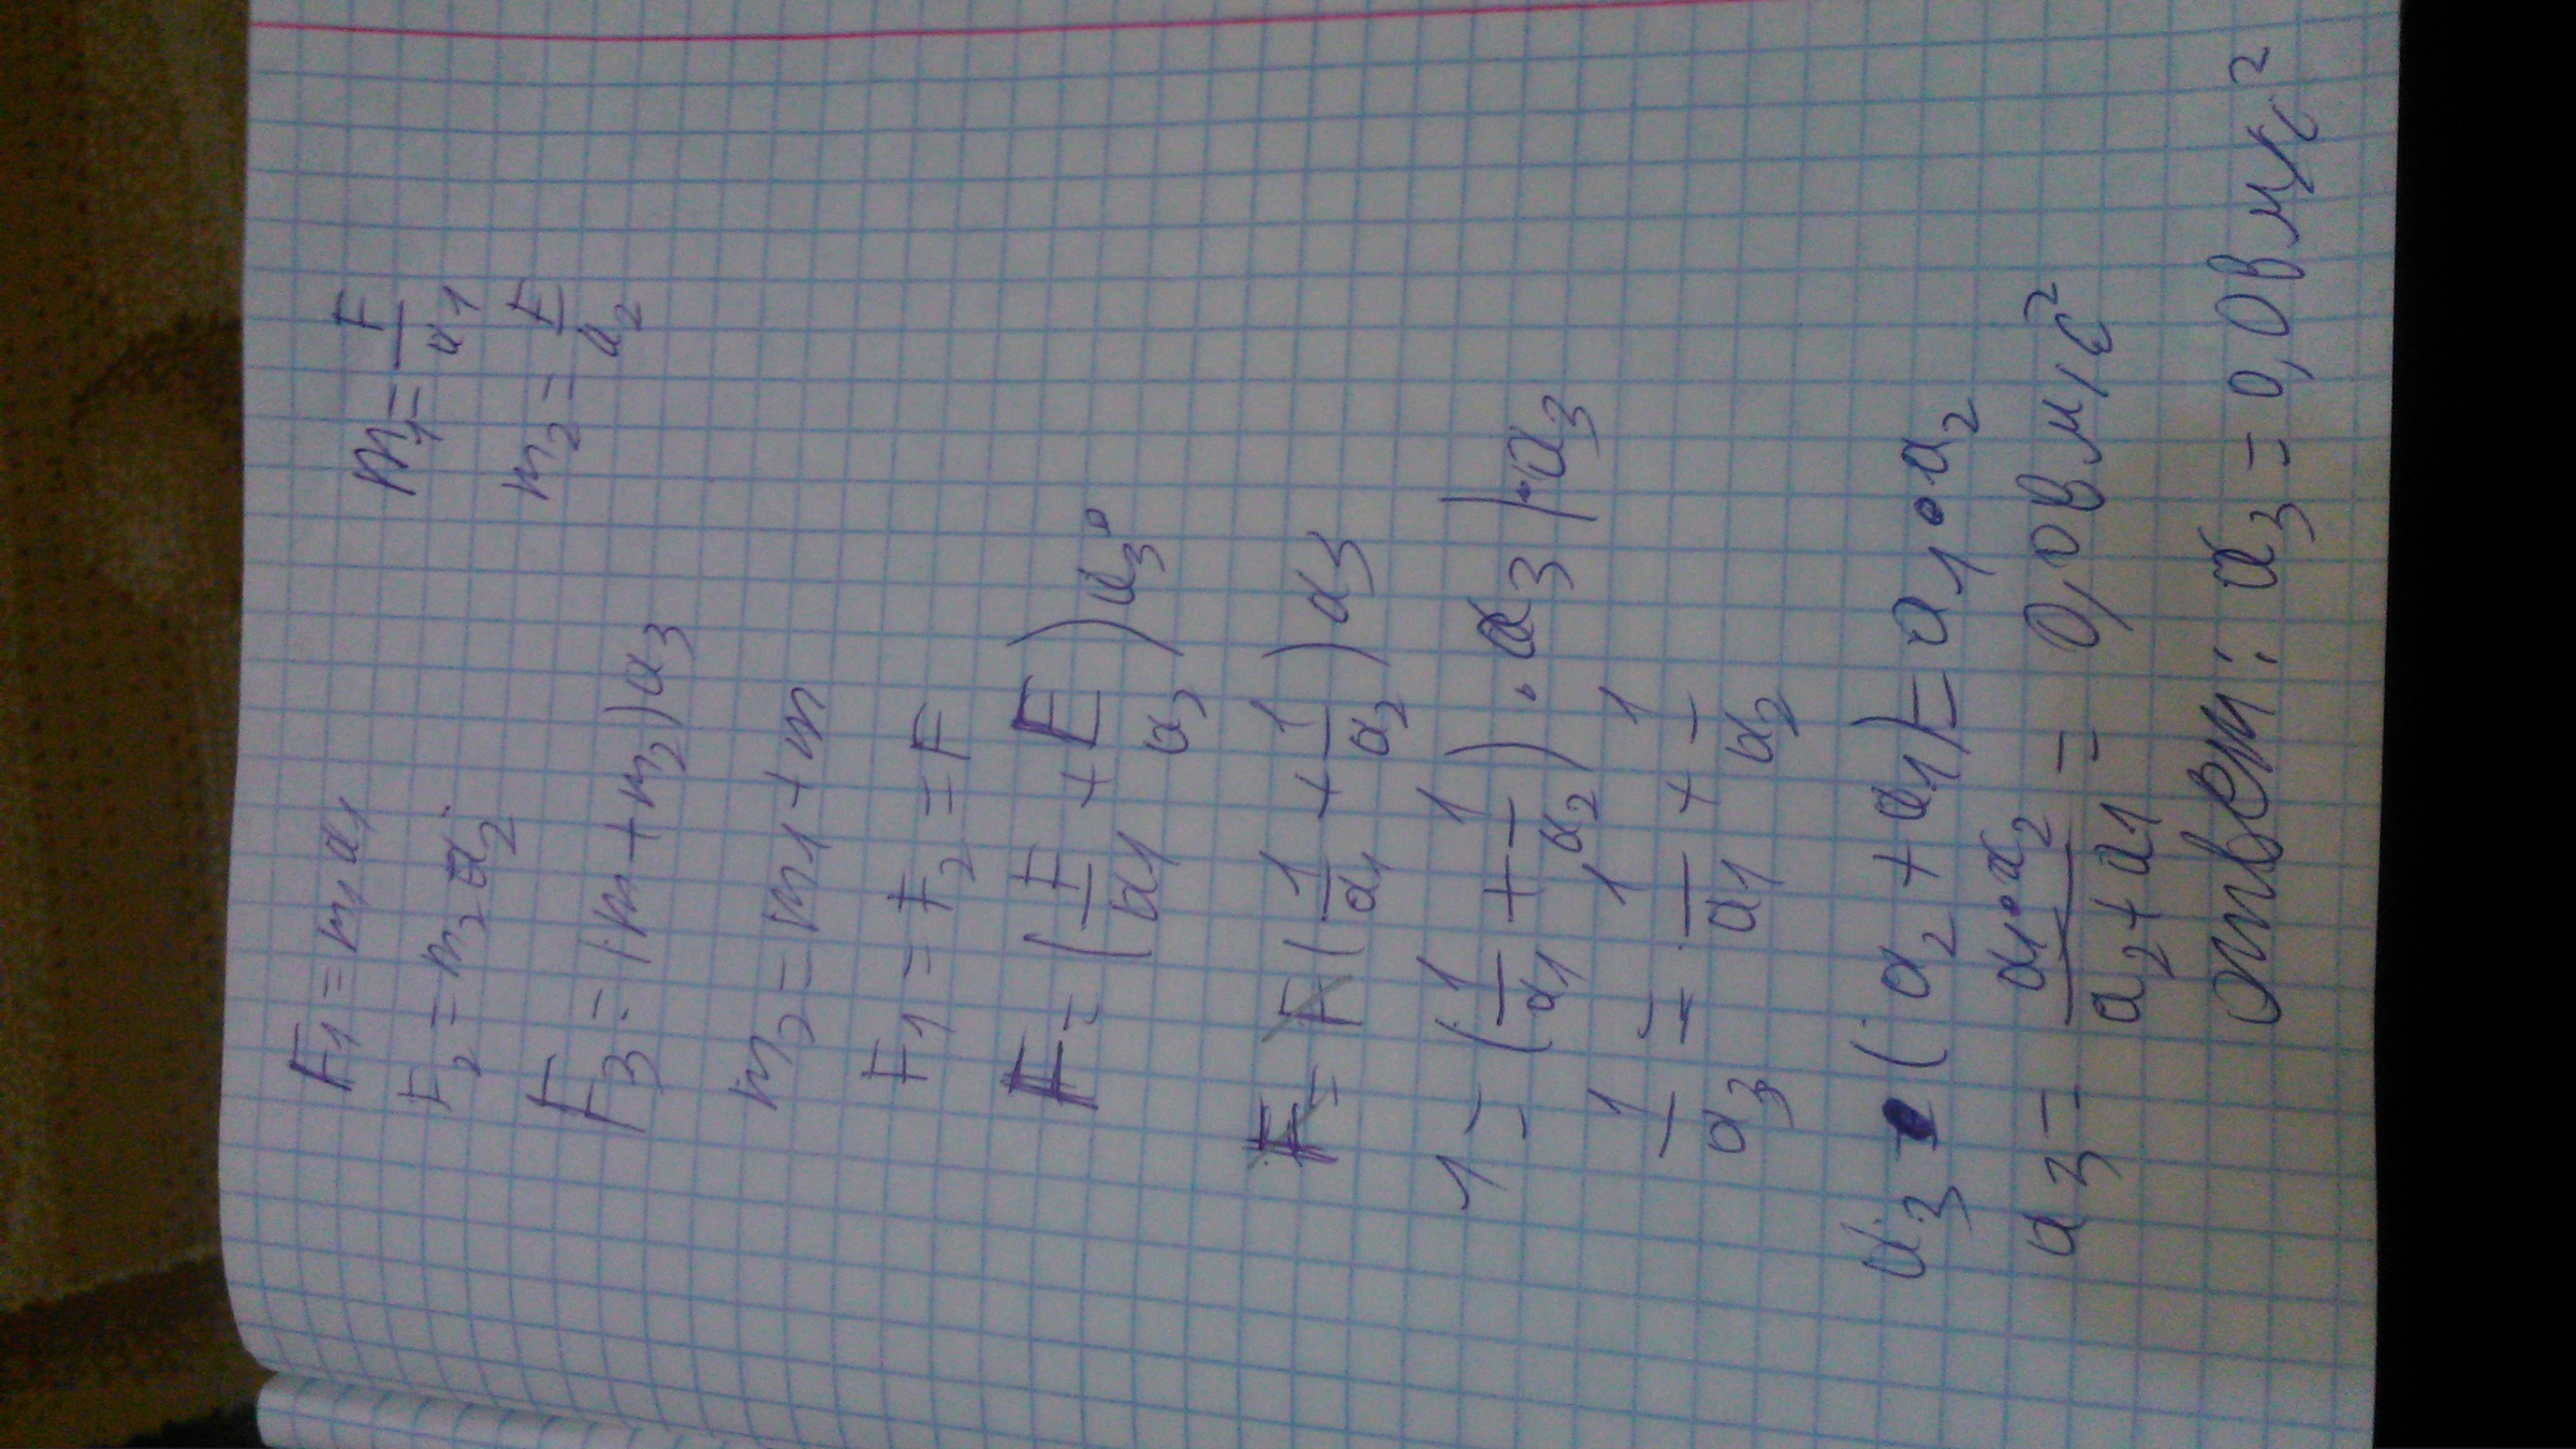 F₁ = m₁a₁
m₁ = F/a₁
F₂ = m₂a₂
m₂ = F/a₂
F₃ = (m + m₂)a₃
m₃ = m₁ + m
F₁ = F₂ = F
F = (F/a₁ + F/a₂)a₃
F = F(1/a₁ + 1/a₂)a₃
1 = (1/a₁ + 1/a₂) · a₃ | : a₃
1/a₃ = 1/a₁ + 1/a₂
a₃ · (a₂ + a₁) = a₁ · a₂
a₃ = a₁·a₂/a₂ + a₁ = 0,08 м/с²
ответ: a₃ = 0,08 м/с²